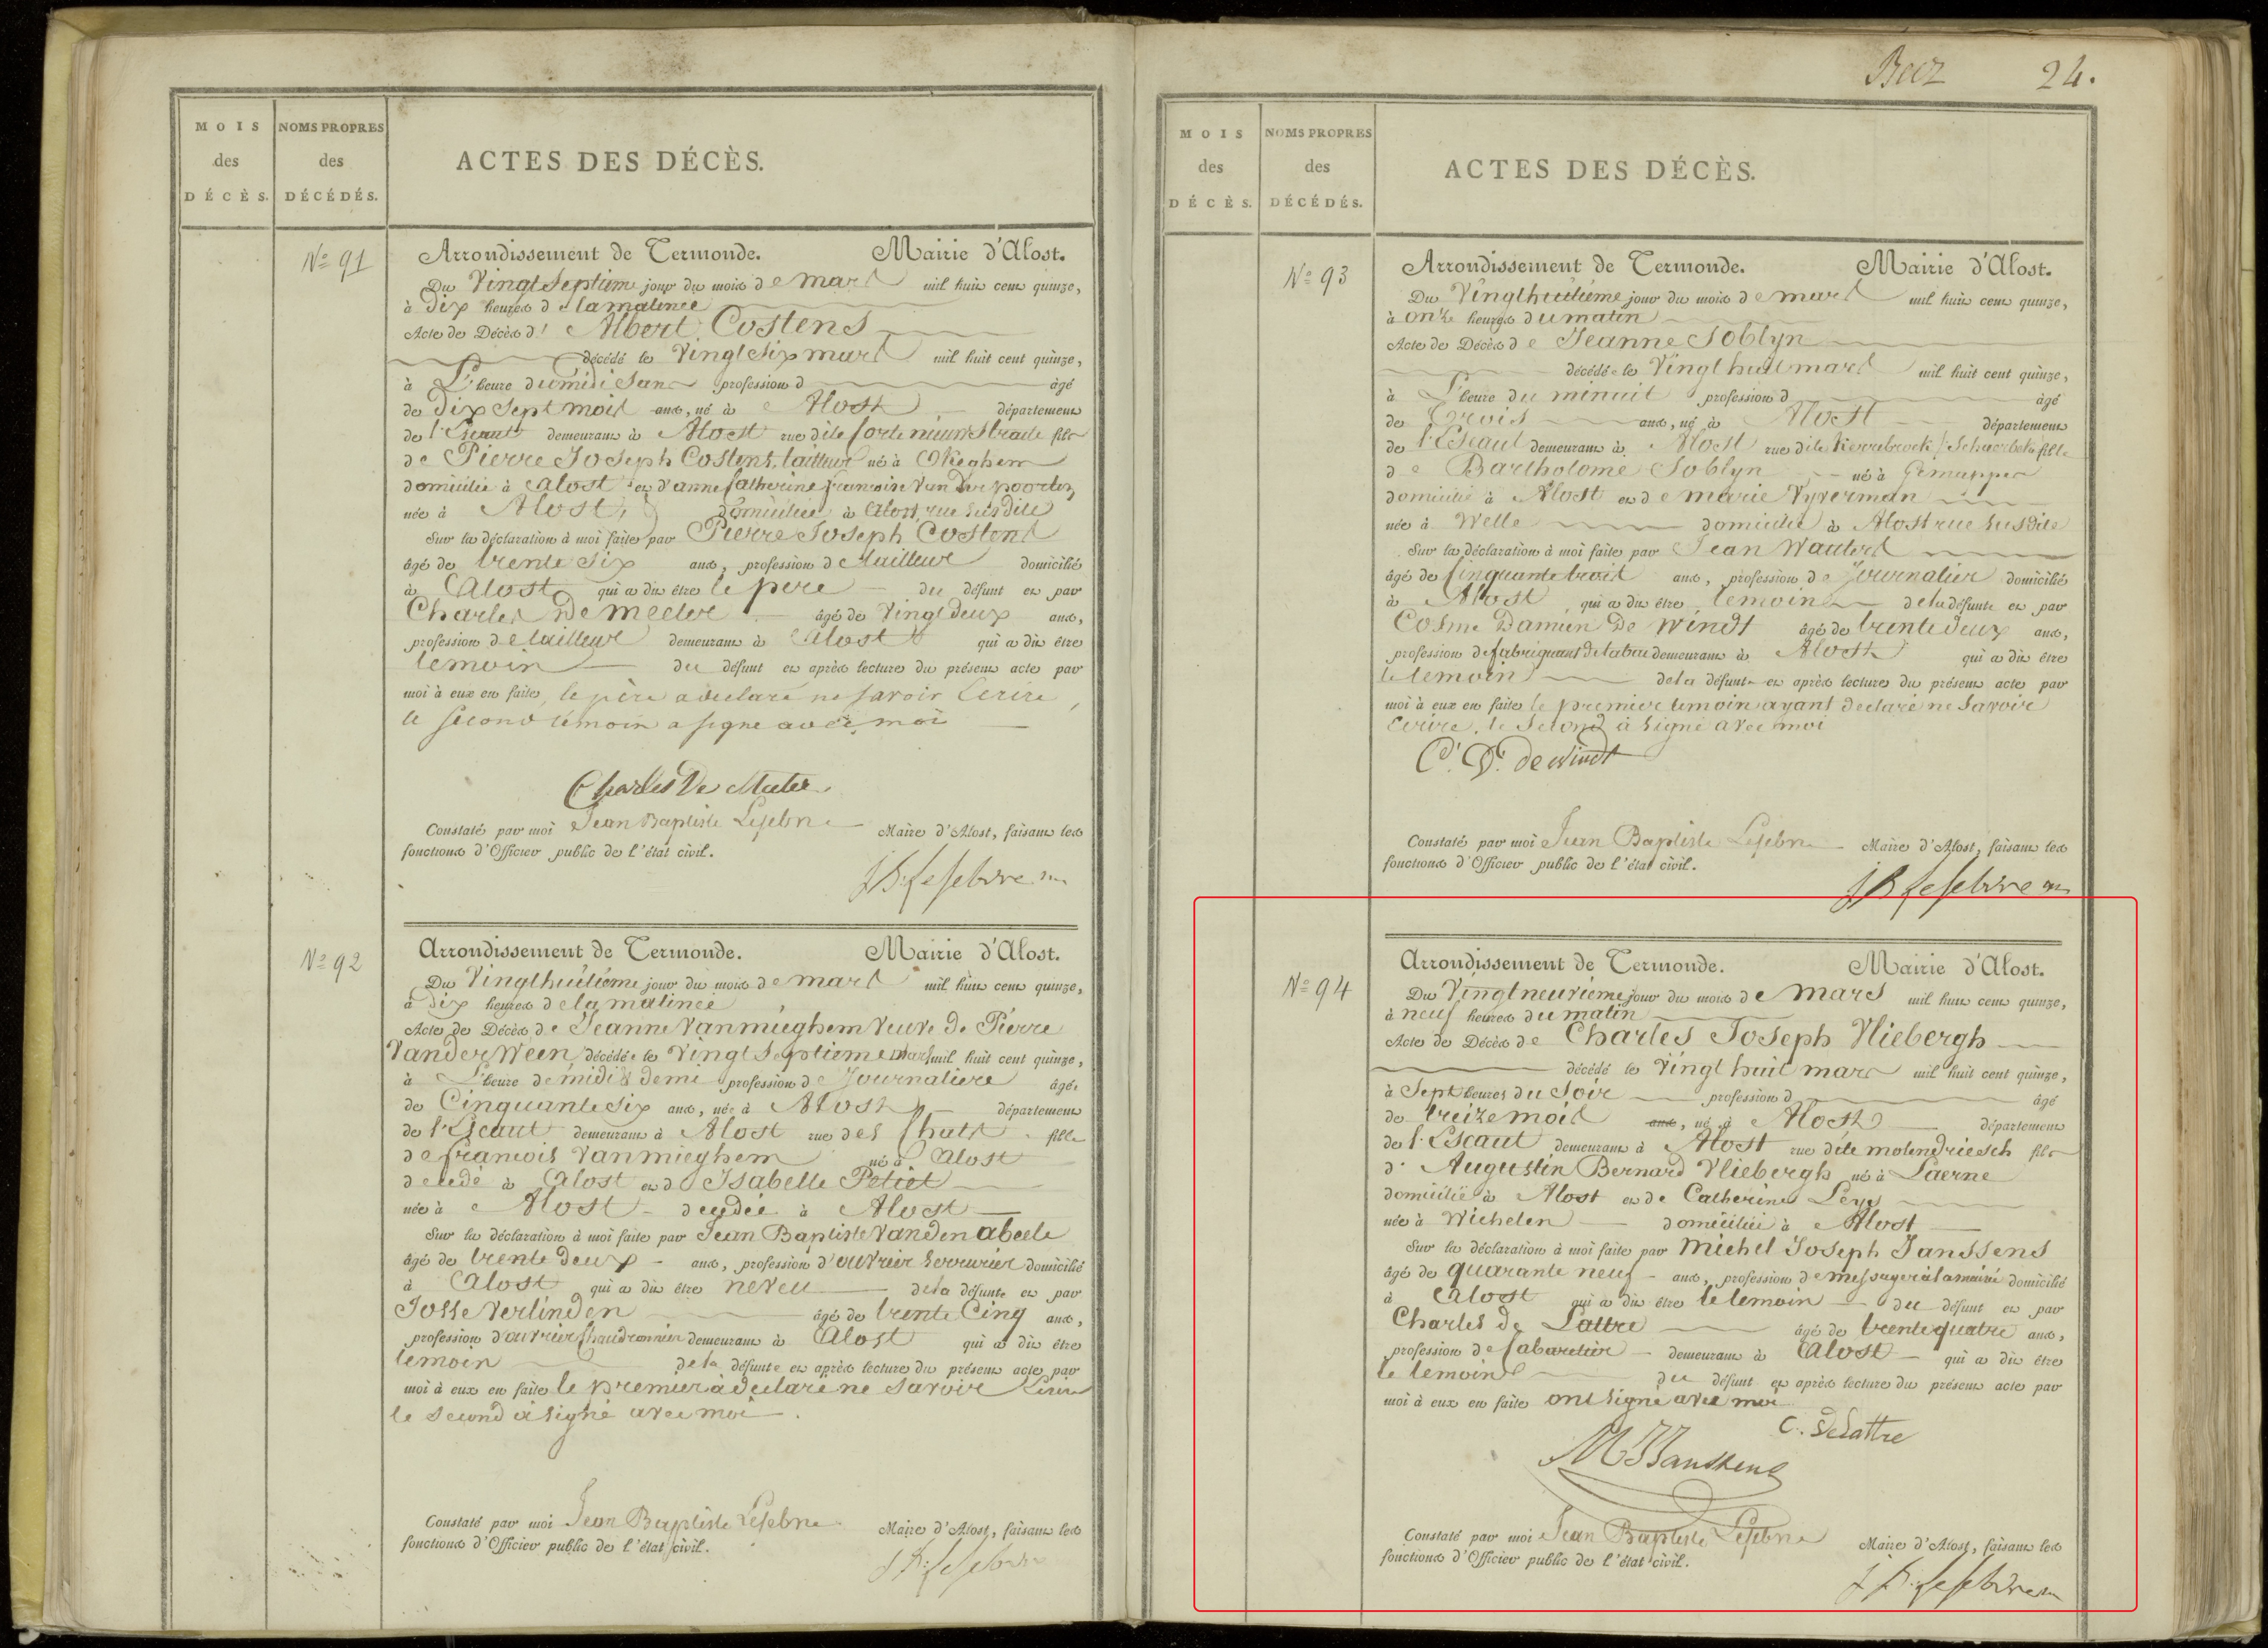 MOIS
des
DÉCÈS.
NOMS PROPRES
des
DÉCÉDÉS.
ACTES DES DÉCÈS.
No 91
Arrondissement de Termonde. Mairie d'Alost.
Du Vingt Septiem jour du mois de mars mil huit cent quinze,
à dix heures de la matinee
Acte de Décès d' Albert Costens
décédé le Vingt Six mars mil huit cent quinze,
à L'heure du midi Sans profession d âgé
de dix Sept mois ans, né à Alost département
de l'Escaut demeurant à Alost rue dite Corte nieuwstraete fils
de Pierre Joseph Costens, tailleur né à Okeghem
domicilié à alost et d'anne Catherine francoise Van der poorten
née à Alost, domiciliée à alost, rue Susdite
Sur la déclaration à moi faite par Pierre Joseph Costens
âgé de trente Six ans, profession de tailleur domicilié
à Alost qui a dit être le pere du défunt et par
Charles De Meeler âgé de Vingt deux ans,
profession de tailleur demeurant à Alost qui a dit être
temoin du défunt et après lecture du présent acte par
moi à eux en faite, le père a declaré ne savoir Ecrire,
le second témoin a signe avec moi
Charles De Meeter
Constaté par moi Jean Baptiste Lefebvre Maire d'Alost, faisant les
fonctions d'Officier public de l'état civil.
J B Lefebvre
No 92
Arrondissement de Termonde. Mairie d'Alost.
Du Vingthuitiéme jour du mois de mars mil huit cent quinze,
à dix heures de la matineé
Acte de Décès de Jeanne Vanmieghem Veuve de Pierre
Vander Ween décédée le Vingt Septieme mars mil huit cent quinze,
à L'heure de midi & demi profession de Journaliere âgée
de Cinquante Six ans, née à Alost département
de l'Escaut demeurant à Alost rue des Chats fille
de francois Vanmieghem né à Alost
decedé à Alost et d Isabelle Petiet
née à Alost decedée à Alost
Sur la déclaration à moi faite par Jean Baptiste Vanden abeele
âgé de trente deux ans, profession d'ouvrier Serrurier domicilié
à Alost qui a dit être neveu de la défunte et par
Josse Verlinden âgé de trente Cinq ans,
profession d'ouvrier Chaudronnier demeurant à Alost qui a dit être
temoin de la défunte et après lecture du présent acte par
moi à eux en faite le premier à declaré ne savoir Ecrire
le Second à signé avec moi.
Constaté par moi Jean Baptiste Lefebvre Maire d'Alost, faisant les
fonctions d'Officier public de l'état civil.
J B Lefebvre
24.
MOIS
des
DÉCÈS.
NOMS PROPRES
des
DÉCÉDÉS.
ACTES DES DÉCÈS.
No 93
Arrondissement de Termonde. Mairie d'Alost.
Du Vingthuitiéme jour du mois de mars mil huit cent quinze,
à onze heures du matin
Acte de Décès de Jeanne Soblyn
décédée le Vingt huit mars mil huit cent quinze,
à L'heure du minuit profession d âgé
de Trois ans, né à Alost département
de l'Escaut demeurant à Alost rue dite fille
de Bartholomé Soblyn né à Gemappes
domicilié à Alost et de marie Vyverman
née à Welle domiciliée à Alost rue Susdite
Sur la déclaration à moi faite par Jean Wauters
âgé de Cinquante trois ans, profession de Journalier domicilié
à Alost qui a dit être temoin de la défunte et par
Cosme Damien De Windt âgé de trente deux ans,
profession de fabriquant de tabac demeurant à Alost qui a dit être
le temoin de la défunte et après lecture du présent acte par
moi à eux en faite le premier temoin ayant declaré ne Savoir
Ecrire, le Second à signé avec moi
C. D. de Windt
Constaté par moi Jean Baptiste Lefebvre Maire d'Alost, faisant les
fonctions d'Officier public de l'état civil.
J B Lefebvre
No 94
Arrondissement de Termonde. Mairie d'Alost.
Du Vingtneuvième jour du mois de mars mil huit cent quinze,
à neuf heures du matin
Acte de Décès de Charles Joseph Vliebergh
décédé le Vingt huit mars mil huit cent quinze,
à Sept heures du Soir profession d âgé
de treize mois ans, né à Alost département
de l'Escaut demeurant à Alost rue dite molendriesch fils
d' Augustin Bernard Vliebergh né à Laerne
domicilié à Alost et de Catherine Leys
née à Wichelen domiciliée à Alost
Sur la déclaration à moi faite par Michel Joseph Janssens
âgé de quarante neuf ans, profession de messager à la mairie domicilié
à Alost qui a dit être le temoin du défunt et par
Charles de Lattre âgé de trente quatre ans,
profession de Cabaretier demeurant à Alost qui a dit être
le temoin du défunt et après lecture du présent acte par
moi à eux en faite ont signé avec moi
C. Delattre
M J Janssens
Constaté par moi Jean Baptiste Lefebvre Maire d'Alost, faisant les
fonctions d'Officier public de l'état civil.
J B Lefebvre